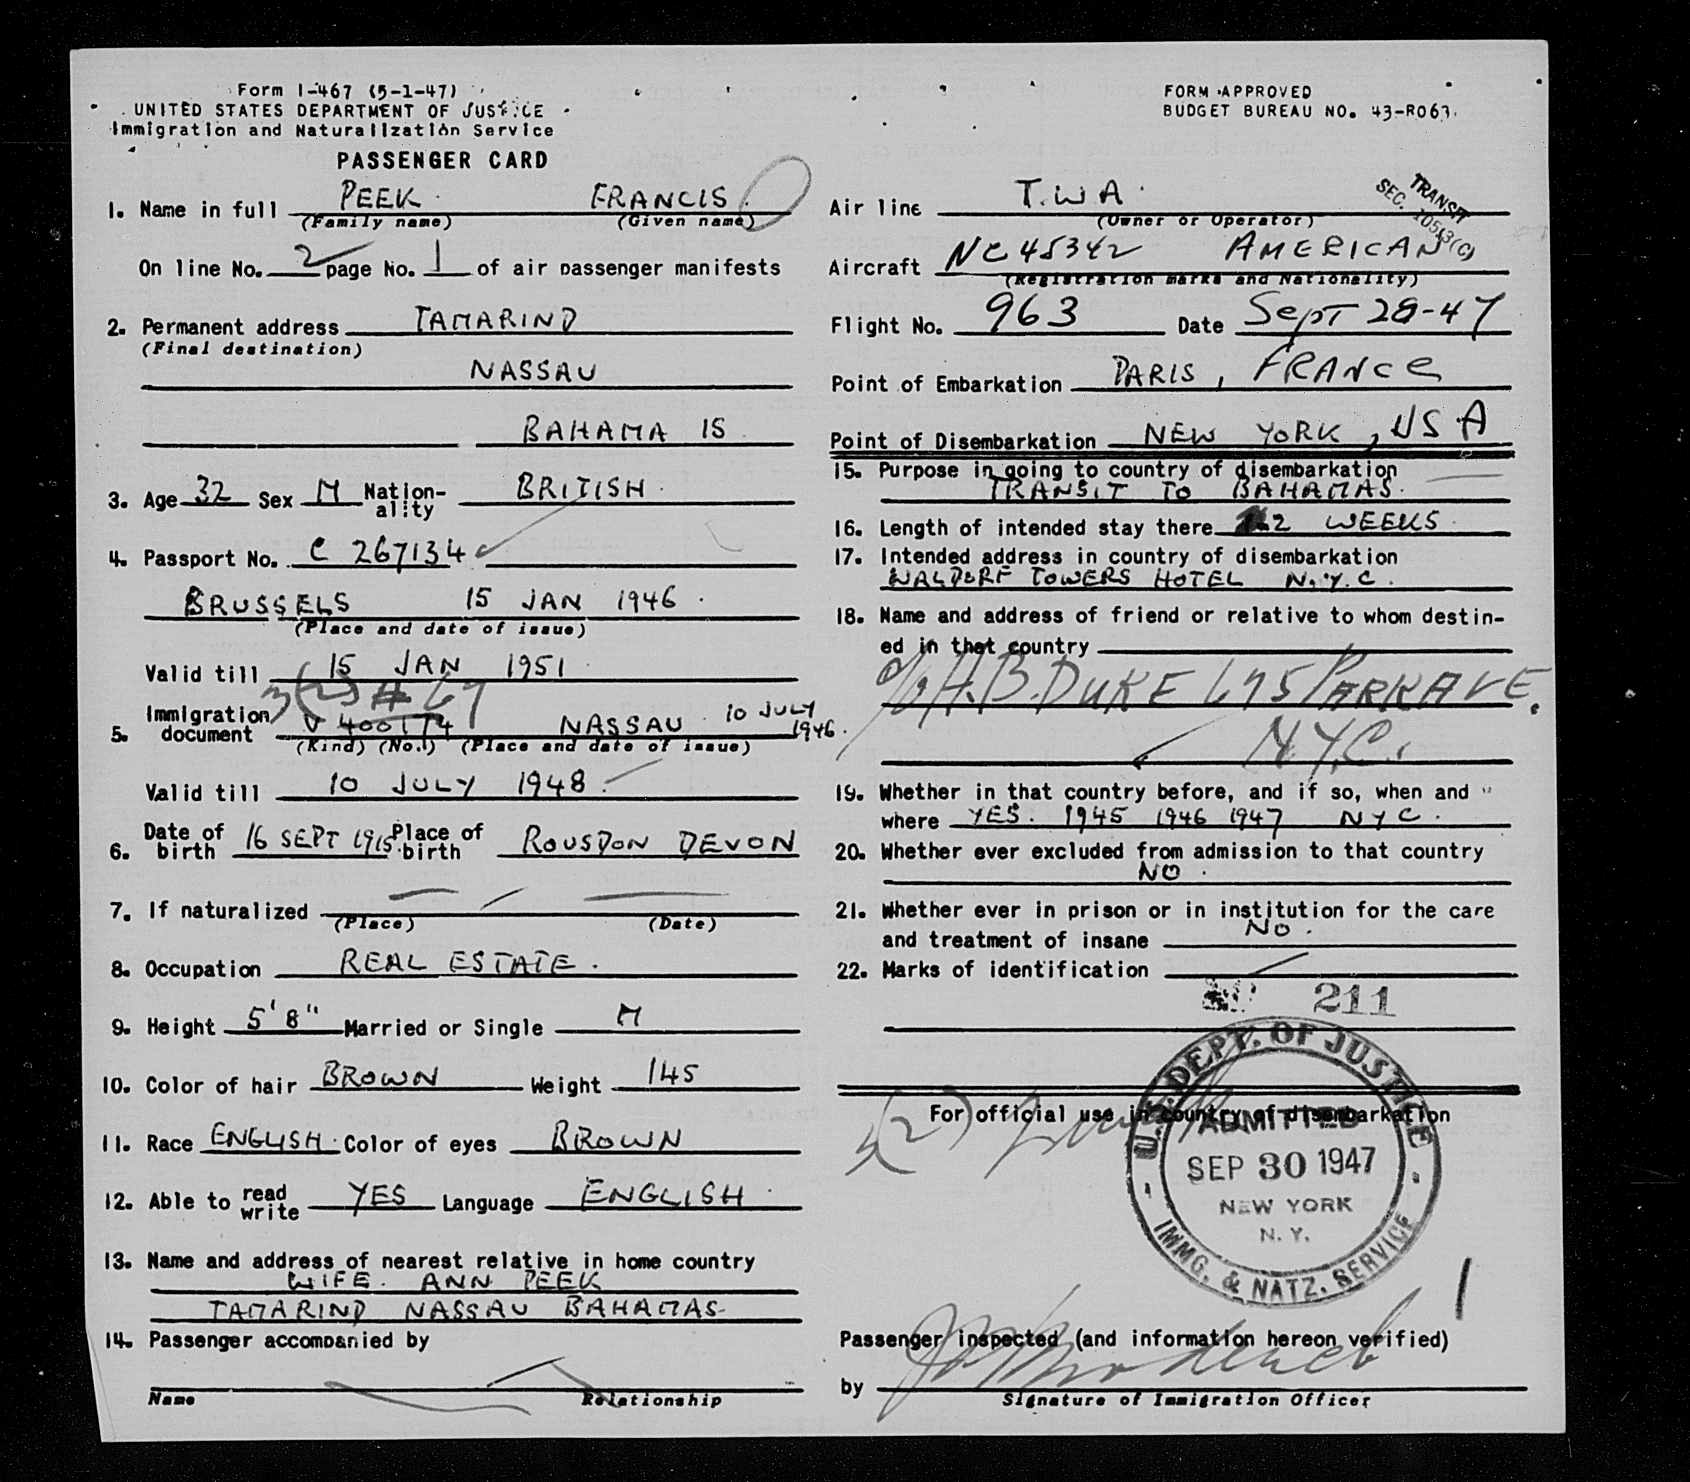 Form I-467 (5-1-47)
UNITED STATES DEPARTMENT OF JUSTICE
Immigration and Naturalization Service
PASSENGER CARD
FORM APPROVED
BUDGET BUREAU NO. 43-R063.
1. Name in full PEEK FRANCIS.
(Family name) (Given name)
On line No. 2 page No. 1 of air passenger manifests
2. Permanent address TAMARIND
(Final destination)
NASSAU
BAHAMA IS
3. Age 32 Sex M Nation-ality BRITISH
4. Passport No. C 267134
BRUSSELS 15 JAN 1946.
(Place and date of issue)
Valid till 15 JAN 1951
3(2) # 67
5. Immigration document V 400174 NASSAU 10 JULY 1946.
(Kind) (No.) (Place and date of issue)
Valid till 10 JULY 1948.
6. Date of birth 16 SEPT 1915 Place of birth ROUSDON DEVON
7. If naturalized
(Place) (Date)
8. Occupation REAL ESTATE.
9. Height 5'8" Married or Single M
10. Color of hair BROWN Weight 145
11. Race ENGLISH. Color of eyes BROWN
12. Able to read write YES Language ENGLISH
13. Name and address of nearest relative in home country
WIFE. ANN PEEK
TAMARIND NASSAU BAHAMAS
14. Passenger accompanied by
Name Relationship
TRANSIT
SEC. 105.3(C)
Air line T.W.A.
(Owner or Operator)
Aircraft NC 45342 AMERICAN
(Registration marks and Nationality)
Flight No. 963 Date Sept 28-47
Point of Embarkation PARIS, FRANCE
Point of Disembarkation NEW YORK, USA
15. Purpose in going to country of disembarkation
TRANSIT TO BAHAMAS.
16. Length of intended stay there 2 WEEKS
17. Intended address in country of disembarkation
WALDORF TOWERS HOTEL N.Y.C.
18. Name and address of friend or relative to whom destin-
ed in that country
c/o A.B. DUKE 675 PARK AVE.
N.Y.C.
19. Whether in that country before, and if so, when and
where YES. 1945 1946 1947 NYC.
20. Whether ever excluded from admission to that country
NO.
21. Whether ever in prison or in institution for the care
and treatment of insane NO.
22. Marks of identification
211
For official use in country of disembarkation
U.S. DEPT. OF JUSTICE
ADMITTED
SEP 30 1947
NEW YORK
N. Y.
IMMG. & NATZ. SERVICE
Passenger inspected (and information hereon verified)
by
Signature of Immigration Officer